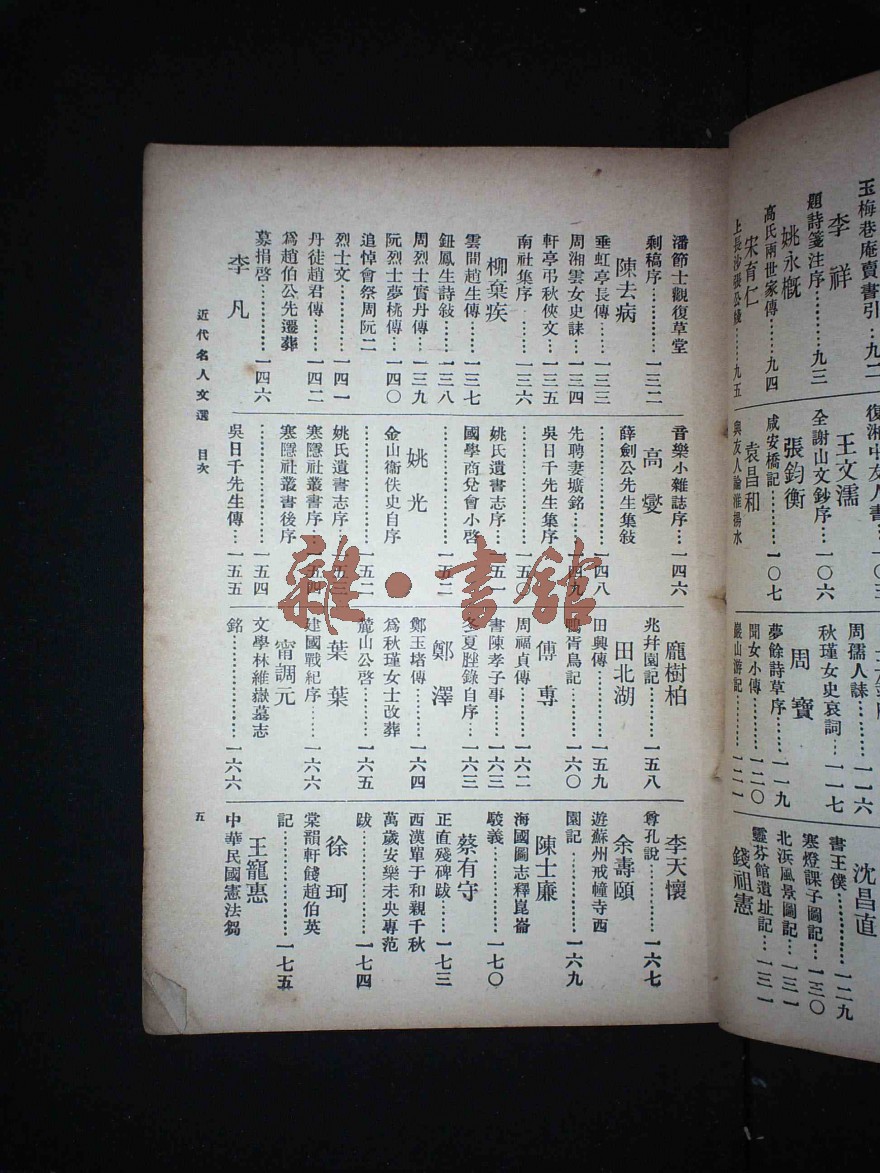 玉梅巷庵賣書引…九二
李祥
題詩箋注序……九三
姚永概
高氏兩世家傳…九四
宋育仁
王文濡
全謝山文鈔序…一〇六
張鈞衡
咸安橋記………一〇七
袁昌和
周孺人誄………一一六
秋瑾女史哀詞…一一七
周實
夢餘詩草序……一一九
聞女小傳………一二〇
巖山游記………一二一
沈昌直
書王僕…………一二九
寒燈課子圖記…一三〇
北浜風景圖記…一三一
靈芬館遺址記…一三一
錢祖憲
潘節士觀復草堂
剩稿序…………一三二
陳去病
垂虹亭長傳……一三三
周湘雲女史誄…一三四
軒亭弔秋俠文…一三五
南社集序………一三六
柳棄疾
雲間趙生傳……一三七
鈕鳳生詩敍……一三八
周烈士實丹傳…一三九
阮烈士夢桃傳…一四〇
追悼會祭周阮二
烈士文…………一四一
丹徒趙君傳……一四二
爲趙伯公先遷葬
募捐啓…………一四六
李凡
音樂小雜誌序…一四六
高燮
薛劍公先生集敍
…………………一四八
先聘妻壙銘……一四九
吳日千先生集序
…………………一五〇
姚氏遺書志序…一五一
國學商兌會小啓
…………………一五二
姚光
金山衞佚史自序
…………………一五二
姚氏遺書志序…一五三
寒隱社叢書序…一五四
寒隱社叢書後序
…………………一五四
吳日千先生傳…一五五
龐樹柏
兆幷園記………一五八
田北湖
田興傳…………一五九
鴨胥鳥記………一六〇
傅尃
周福貞傳………一六二
書陳孝子事……一六三
冬夏脞錄自序…一六三
鄭澤
鄭玉塔傳………一六四
爲秋瑾女士改葬
麓山公啓………一六五
葉葉
建國戰紀序……一六六
甯調元
文學林維嶽墓志
銘………………一六六
李天懷
尊孔說…………一六七
余壽頤
遊蘇州戒幢寺西
園記……………一六九
陳士廉
海國圖志釋崑崙
駁義……………一七〇
蔡有守
正直殘碑跋……一七三
西漢單于和親千秋
萬歲安樂未央專范
跋………………一七四
徐珂
棠韻軒餞趙伯英
記………………一七五
王寵惠
中華民國憲法芻
近代名人文選 目次
五
雜·書館